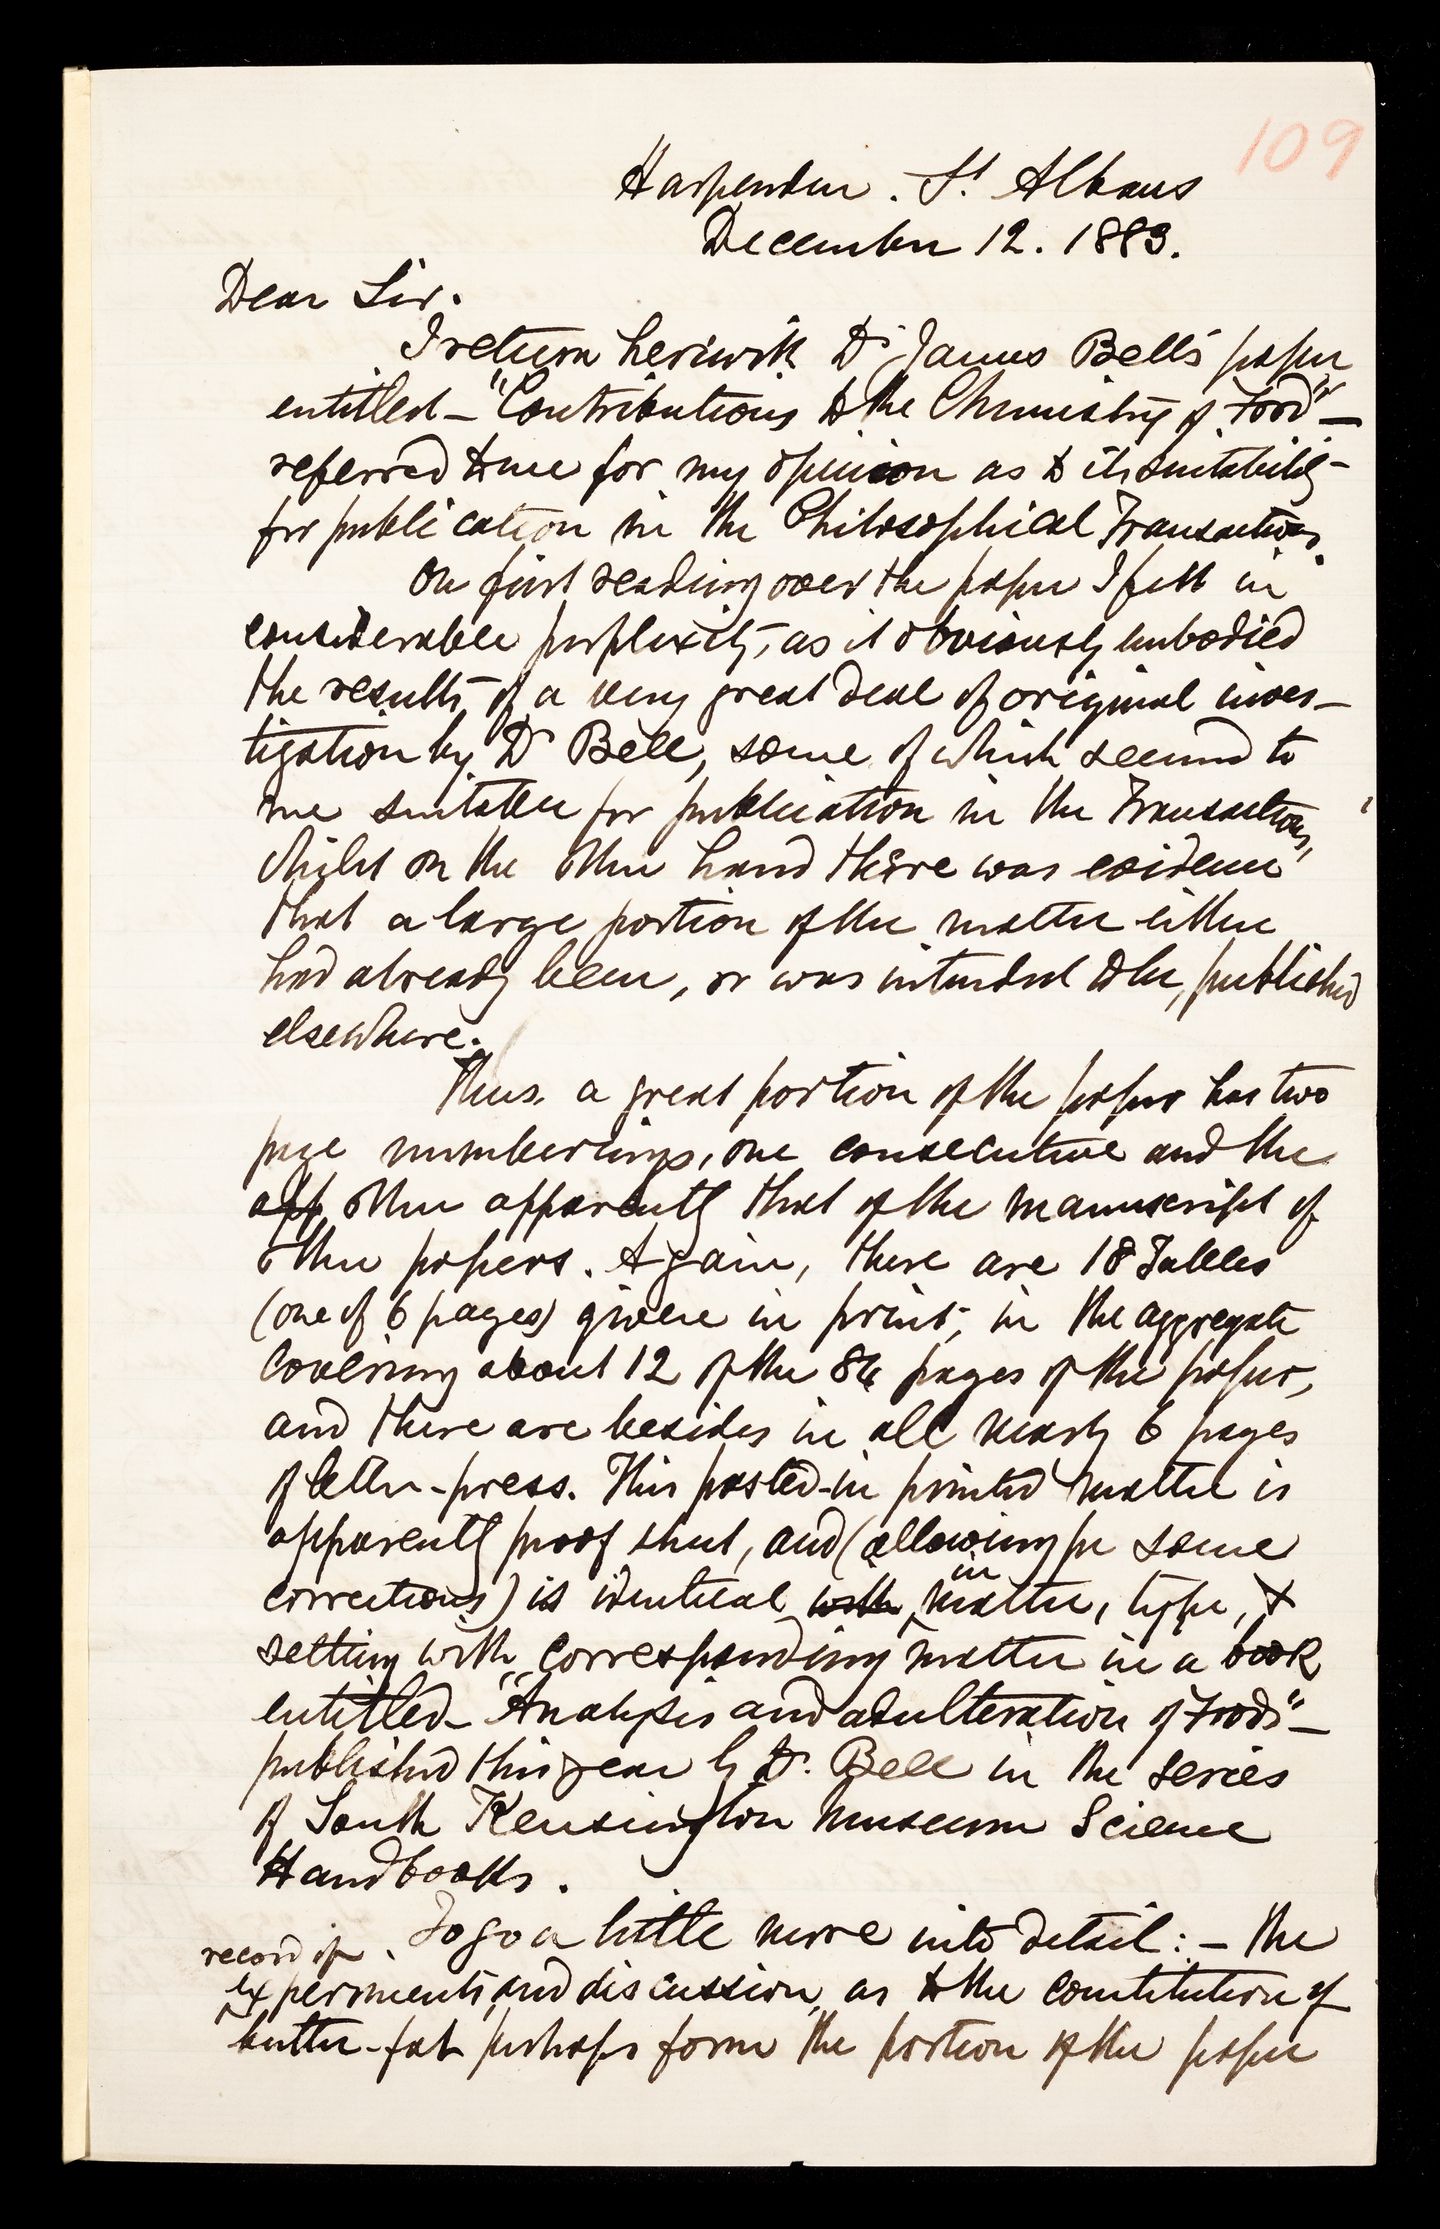 109
Harpenden. St. Albans
December 12. 1883.
Dear Sir.
I return herewith Dr James Bell's paper
entitled – "Contributions to the Chemistry of Food" –
referred to me for my opinion as to its suitability
for publication in the Philosophical Transactions.
On first reading over the paper I felt in
considerable perplexity, as it obviously embodied
the results of a very great deal of original inves–
tigation by Dr Bell, some of which seemed to
me suitable for publication in the Transactions,
whilst on the other hand there was evidence
that a large portion of the matter either
had already been, or was intended to be, published
elsewhere.
Thus, a great portion of the paper has two
page numberings, one consecutive and the
app other apparently that of the manuscript of
other papers. Again, there are 18 Tables
(one of 6 pages) given in print, in the aggregate
covering about 12 of the 84 pages of the paper,
and there are besides in all nearly 6 pages
of letter-press. This pasted-in printed matter is
apparently proof sheet, and (allowing for some
corrections) is identical with in matter, type, &
setting with corresponding matter in a book
entitled – "Analysis and adulteration of Foods" –
published this year by Dr. Bell in the series
of South Kensington Museum Science
Handbooks.
To go a little more into detail: – The
record of
experiments, and discussion, as to the constitution of
butter-fat perhaps form the portion of the paper